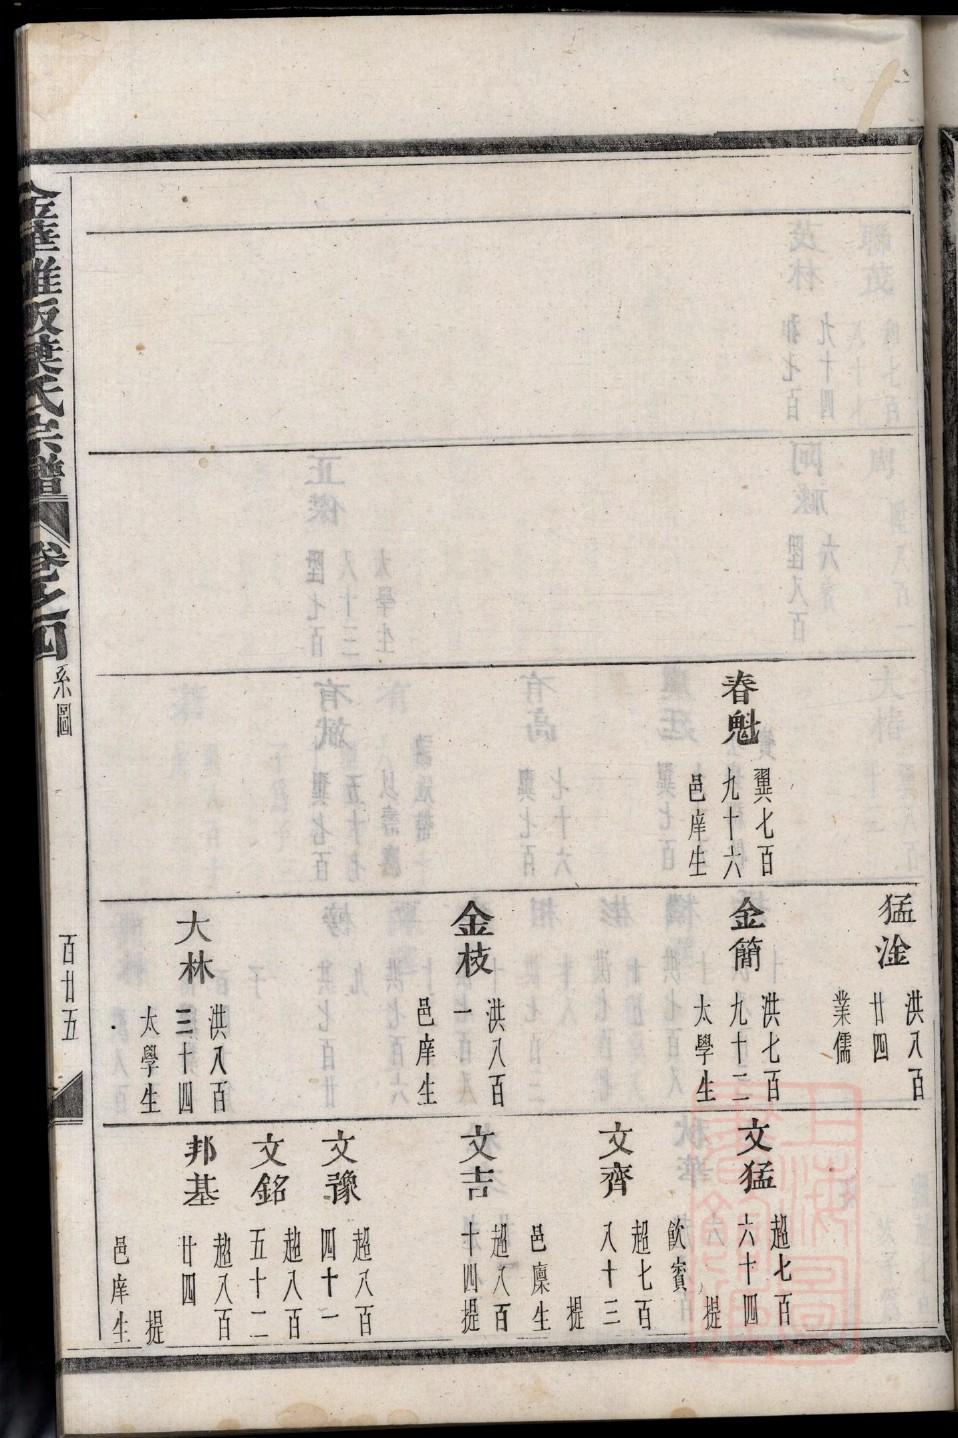 春魁
翼七百
九十六
邑庠生
猛淦
洪八百
廿四
業儒
金簡
洪七百
九十二
太學生
金枝
洪八百
一
邑庠生
大林
洪八百
三十四
太學生
文猛
超七百
六十四
提
飲賓
文齊
超七百
八十三
提
邑廩生
文吉
超八百
十四提
文豫
超八百
四十一
文銘
超八百
五十二
邦基
超八百
廿四
提
邑庠生
金華雅畈葉氏宗譜
卷之四
系圖
百廿五